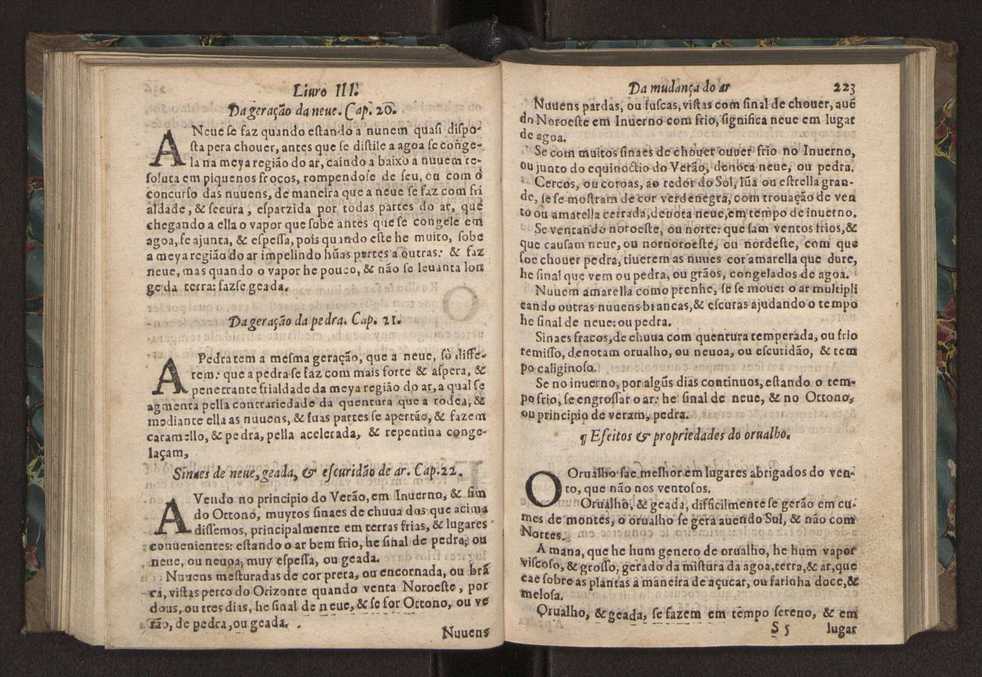 Liuro III.
Da geração da neue. Cap. 20.
A Neue se faz quando estando a nuuem quasi dispo-
sta pera chouer, antes que se distile a agoa se conge-
la na meya região do ar, caindo a baixo a nuuem re-
soluta em piquenos frocos, rompendose de seu, ou com o
concurso das nuuens, de maneira que a neue se faz com fri
aldade, & secura, esparzida por todas partes do ar, que
chegando a ella o vapor que sobe antes que se congele em
agoa, se ajunta, & espessa, pois quando este he muito, sobe
a meya região do ar impelindo hũas partes a outras: & faz
neue, mas quando o vapor he pouco, & não se leuanta lon
ge da terra: fazse geada.
Da geração da pedra. Cap. 21.
A Pedra tem a mesma geração, que a neue, só diffe-
rem: que a pedra se faz com mais forte & aspera, &
penetrante frialdade da meya região do ar, a qual se
agmenta pella contrariedade da quentura que a rodea, &
mediante ella as nuuens, & suas partes se apertão, & fazem
caramello, & pedra, pella acelerada, & repentina conge-
laçam,
Sinaes de neue, geada, & escuridão de ar. Cap. 22.
A Vendo no principio do Verão, em Inuerno, & fim
do Ottono, muytos sinaes de chuua dos que acima
dissemos, principalmente em terras frias, & lugares
conuenientes: estando o ar bem frio, he sinal de pedra, ou
neue, ou neuoa, muy espessa, ou geada.
Nuuens mesturadas de cor preta, ou encornada, ou brã
ca, vistas perto do Orizonte quando venta Noroeste, por
dous, ou tres dias, he sinal de neue, & se for Ottono, ou ve
rão, de pedra, ou geada.
Nuuens
Da mudança do ar 223
Nuuens pardas, ou fuscas, vistas com sinal de chouer, auẽ
do Noroeste em Inuerno com frio, significa neue em lugar
de agoa.
Se com muitos sinaes de chouer ouuer frio no Inuerno,
ou junto do equinoctio do Verão, denota neue, ou pedra.
Cercos, ou coroas, ao redor do Sol, lũa ou estrella gran-
de, se se mostram de cor verdenegra, com trouação de ven
to ou amarella cerrada, denota neue, em tempo de inuerno.
Se ventando noroeste, ou norte: que sam ventos frios, &
que causam neue, ou nornoroeste, ou nordeste, com que
soe chouer pedra, tiuerem as nuues cor amarella que dure,
he sinal que vem ou pedra, ou grãos, congelados de agoa.
Nuuem amarella como prenhe, se se mouer o ar multipli
cando outras nuuens brancas, & escuras ajudando o tempo
he sinal de neue: ou pedra.
Sinaes fracos, de chuua com quentura temperada, ou frio
remisso, denotam orualho, ou neuoa, ou escuridão, & tem
po caliginoso.
Se no inuerno, por algũs dias continuos, estando o tem-
po frio, se engrossar o ar: he sinal de neue, & no Ottono,
ou principio de veram, pedra.
¶ Efeitos & propriedades do orualho.
O Orualho sae melhor em lugares abrigados do ven-
to, que não nos ventosos.
Orualho, & geada, difficilmente se gerão em cu-
mes de montes, o orualho se gera auendo Sul, & não com
Nortes.
A mana, que he hum genero de orualho, he hum vapor
viscoso, & grosso, gerado da mistura da agoa, terra, & ar, que
cae sobre as plantas á maneira de açucar, ou farinha doce, &
melosa.
Orualho, & geada, se fazem em tempo sereno, & em
S 5 lugar